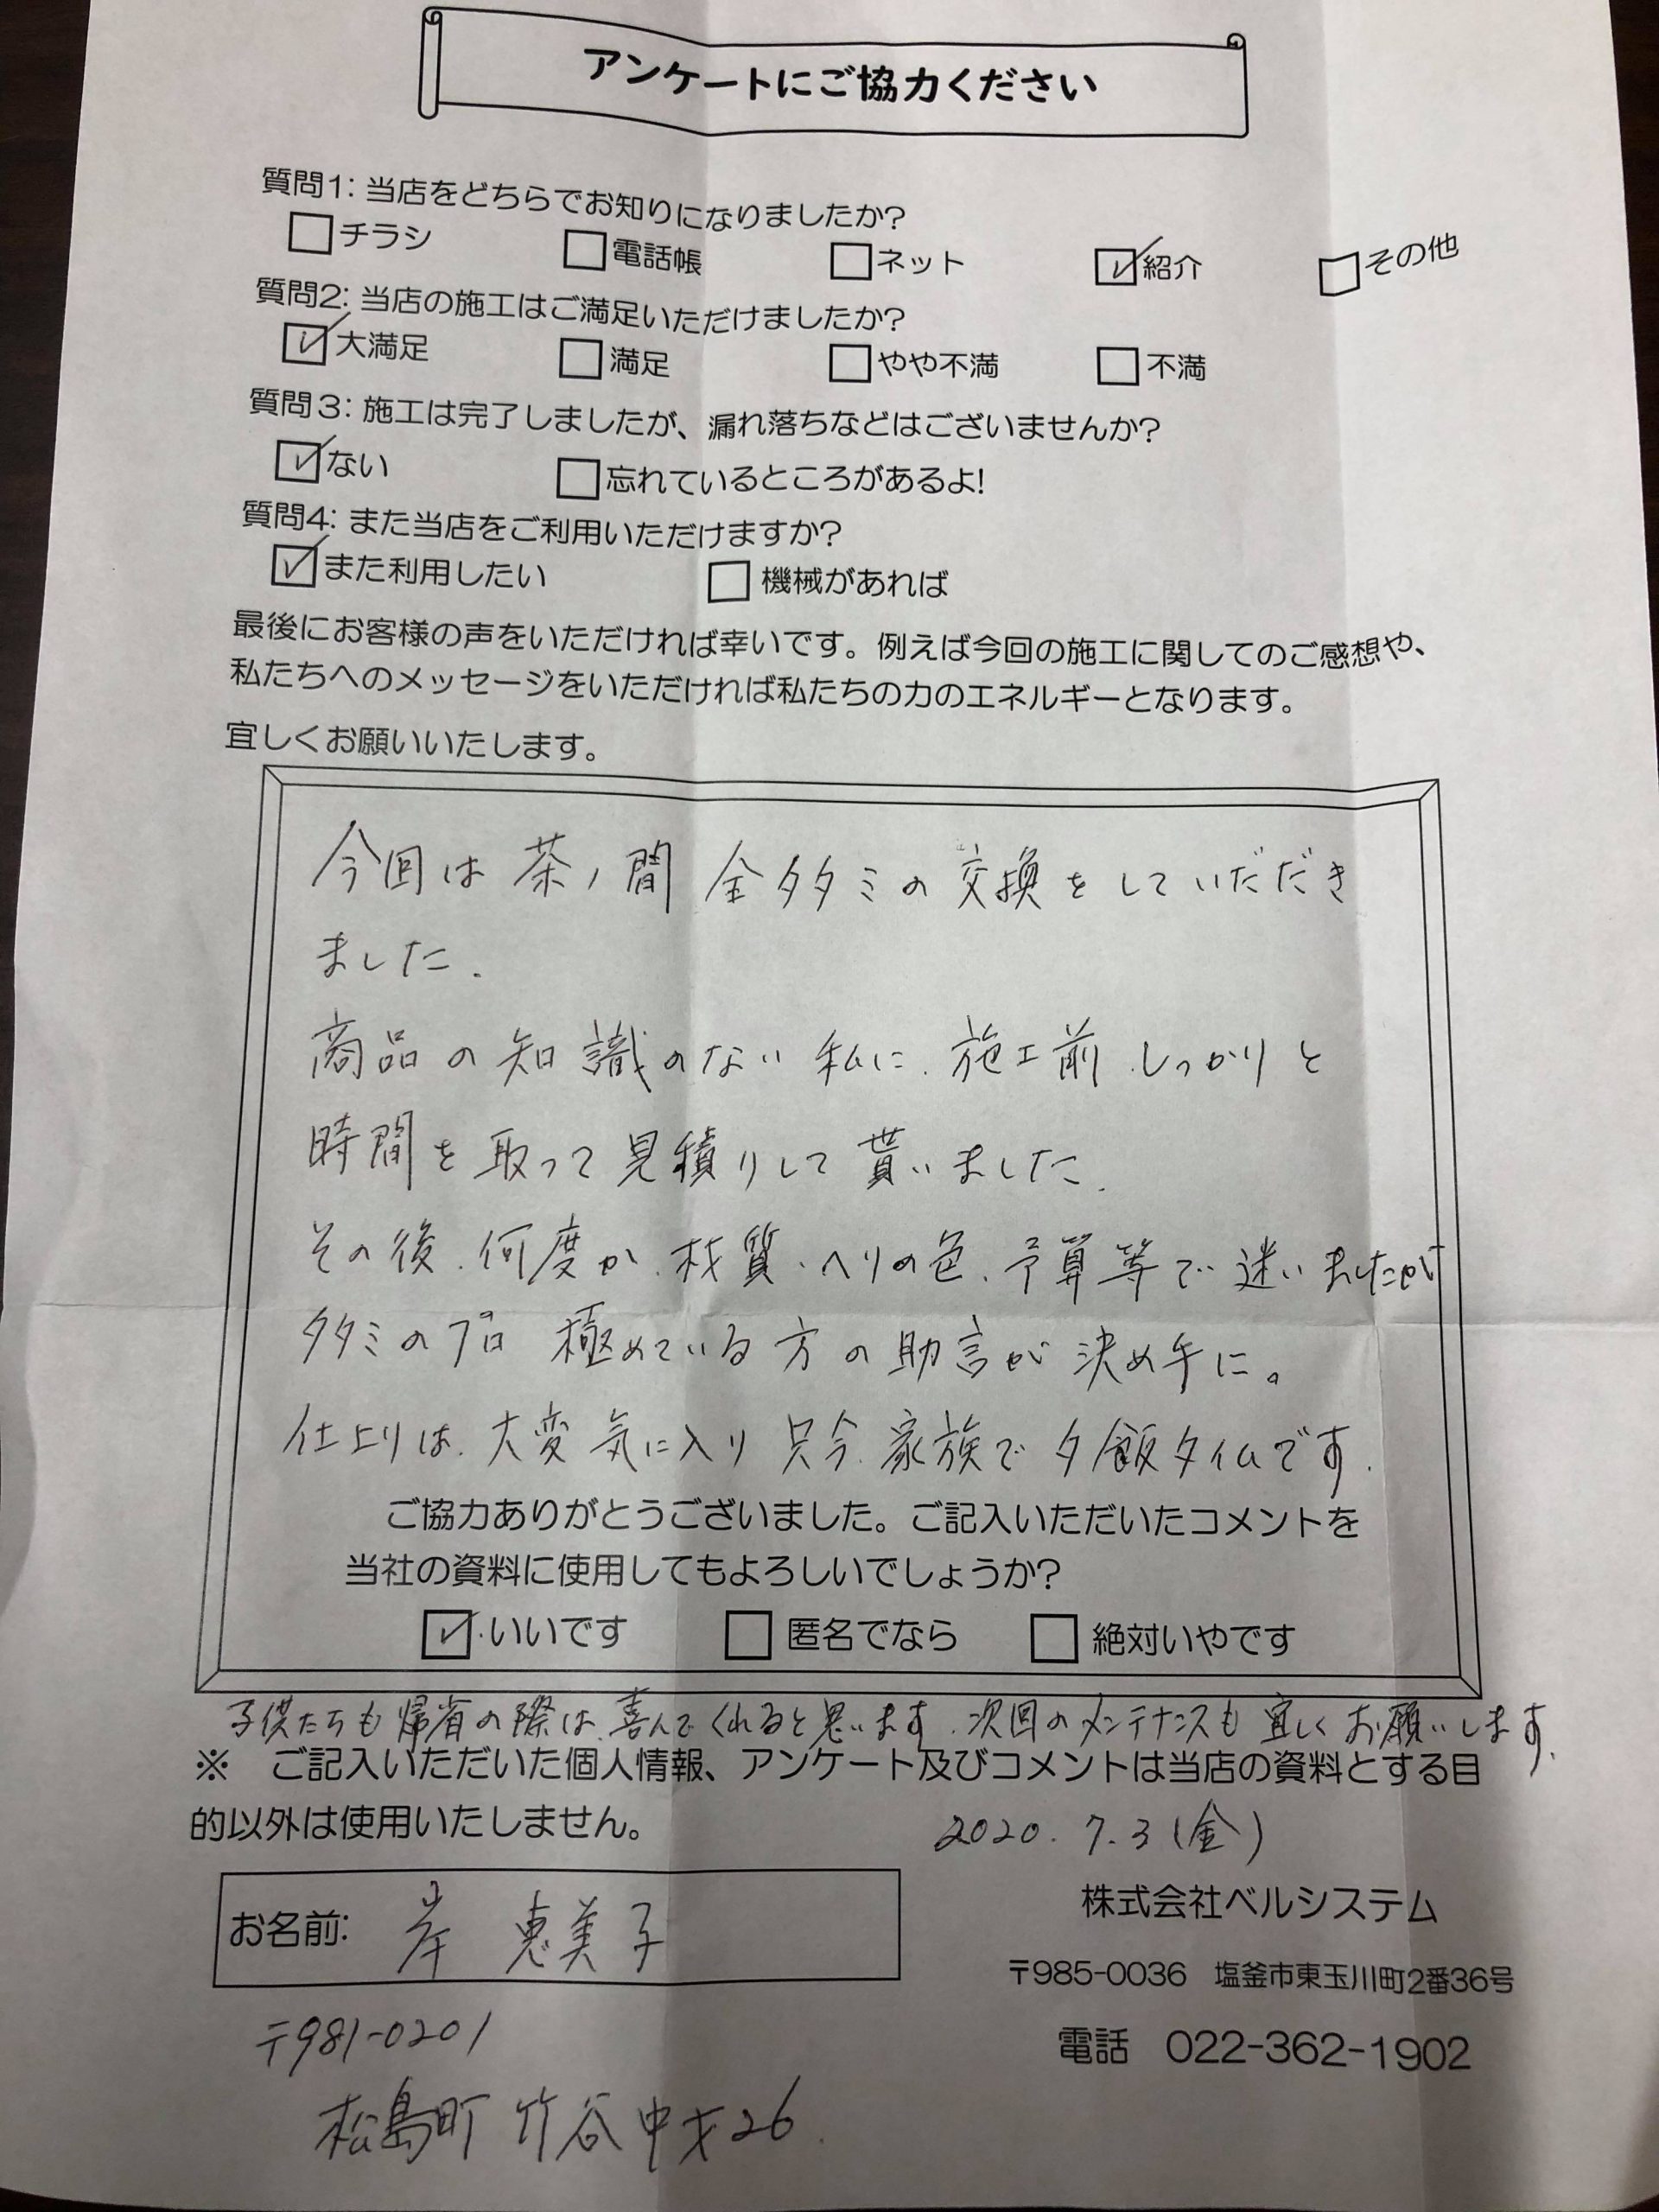 アンケートにご協力ください
質問1: 当店をどちらでお知りになりましたか?
チラシ 電話帳 ネット 紹介 その他
質問2: 当店の施工はご満足いただけましたか?
大満足 満足 やや不満 不満
質問3: 施工は完了しましたが、漏れ落ちなどはございませんか?
ない 忘れているところがあるよ!
質問4: また当店をご利用いただけますか?
また利用したい 機械があれば
最後にお客様の声をいただければ幸いです。例えば今回の施工に関してのご感想や、
私たちへのメッセージをいただければ私たちの力のエネルギーとなります。
宜しくお願いいたします。
今回は茶ノ間 全タタミの交換をしていだだき
ました.
商品の知識のない私に、施工前、しっかりと
時間を取って見積りして貰いました.
その後、何度か、材質、ヘリの色、予算等で迷いましたが
タタミのプロ 極めている方の助言が決め手に。
仕上りは、大変気に入り 只今、家族で夕飯タイムです.
ご協力ありがとうございました。ご記入いただいたコメントを
当社の資料に使用してもよろしいでしょうか?
いいです 匿名でなら 絶対いやです
子供たちも帰省の際は、喜んでくれると思います、次回のメンテナンスも宜しくお願いします.
※ ご記入いただいた個人情報、アンケート及びコメントは当店の資料とする目
的以外は使用いたしません。
2020.7.3(金)
株式会社ベルシステム
お名前: 岸 恵美子
〒985-0036 塩釜市東玉川町2番36号
〒981-0201
電話 022-362-1902
松島町 竹谷中才26